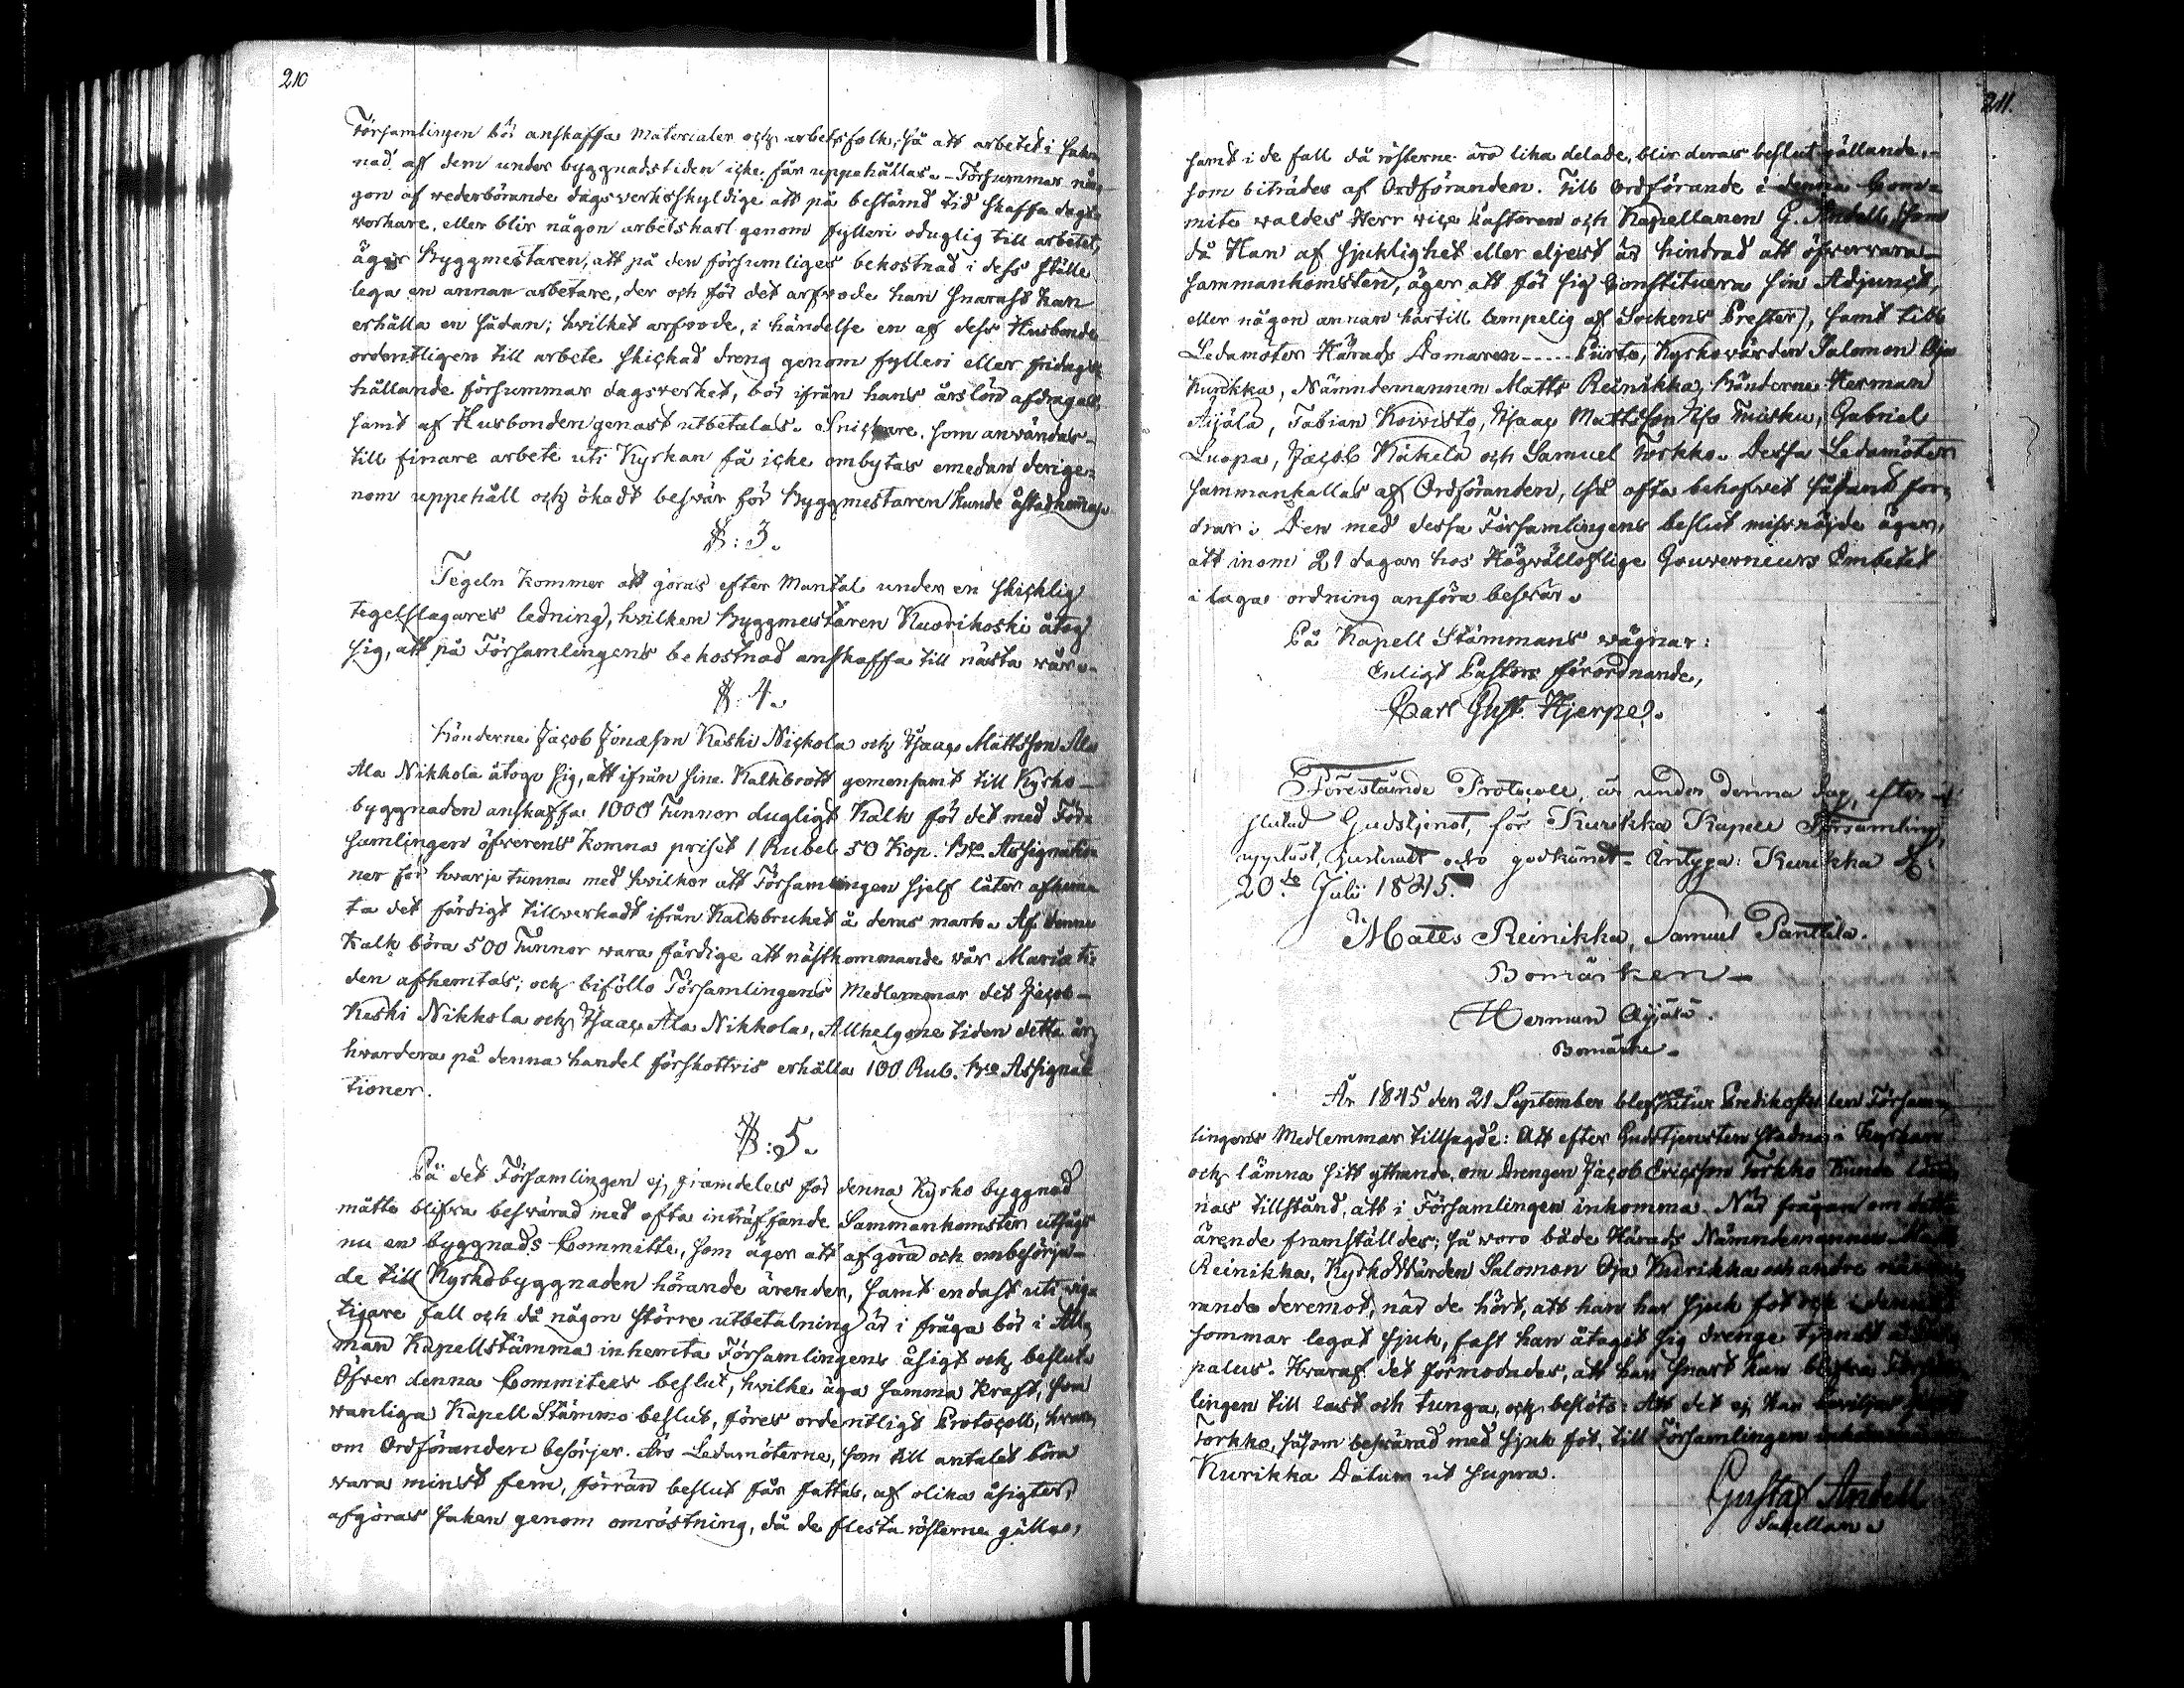 210
Församlingen bör anskaffa materialer och arbetsfolk, så att arbetet i sakn
nad af dem under byggnadstiden icke får uppehållas. - Försummar nå
gon af wederbörande dagsverksskyldige att på bestämd tid skaffa dags
verkare, eller blir någon arbetskarl genom fylleri oduglig till arbetet,
äger Byggmestaren, att på den försumliges bekostnad i dess ställe
lega en annan arbetare, der och för det arfvode han snarast kan
erhålla en sådan; hvilket arfvode, i händelse en af dess Husbonde
ordentligen till arbete skickad dreng genom fylleri eller fridags
hållande försummar dagsverket, bör ifrån hans årslön afdragas,
samt af Husbonden genast utbetalas. Snickare, som användas
till finare arbete uti Kyrkan få icke ombytas emedan derige-
nom uppehåll och ökadt besvär för Byggmestaren kunde åstadkommas
§: 3.
Tegeln kommer att göras efter Mantal under en skicklig
tegelslagares ledning, hvilken Byggmestaren Kuorikoski åtog
sig, att på Församlingens bekostnad anskaffa till nästa vår.
§. 4.
Bönderne Jacob Jonasson Keski Nickola och Isaac Mattsson Ala
Ala Nikkola åtogo sig, att ifrån sina Kalkbrott gemensamt till Kyrko-
byggnaden anskaffa 1000 Tunnor dugligt Kalk för det med För-
samlingen öfverens komna priset 1 Rubel 50 Kop. Bco Assignatio
ner för hvarje tunna med hvilkor att Församlingen sjelf låter afhem
ta det färdigt tillverkadt ifrån Kalkbruket å deras mark. Af denne
Kalk böra 500 Tunnor vara färdige att nästkommande vår Mariæ ti
den afhemtas; och biföllo Församlingens Medlemmar det Jacob
Keski Nikkola och Isaac Ala Nikkola, Allhelgone tiden detta år,
hvardera på denna handel förskottvis erhålla 100 Rub. Bco Assigna
tioner.
§: 5.
På det Församlingen ej framdeles för denna Kyrko byggnad
måtte blifva besvärad med ofta inträffande Sammankomster utsågs
nu en byggnads Committe, som äger att afgöra och ombesörja
de till Kyrkobyggnaden hörande ärenden, samt endast uti vig
tigare fall och då någon större utbetalning är i fråga bör i All
män Kapellstämma inhemta Församlingens åsigt och beslut.
Öfver denna Commitees beslut, hvilke äga samma kraft, som
vanliga Kapell Stämmo beslut, föres ordentligt Protocoll, hvar
om Ordföranden besörjer. Äro Ledamöterne, som till antalet böra
vara minst fem, förrän beslut får fattas, af olika åsigter,
afgöras saken genom omröstning, då de flesta rösterne gälla,
211.
samt i de fall då rösterne äro lika delade, blir deras beslut gällande,
som biträdes af Ordföranden. Till Ordförande i denna Com-
mite valdes Herr vice Pastoren och Kapellanen G. Andell, (som
då Han af sjuklighet eller eljest är hindrad att öfvervara
sammankomsten, äger att för sig Constituera sin Adjunct,
eller någon annan härtill lempelig af Sockens Prester), samt till
Ledamöter Härads Domaren - - - - Piirto, Kyrkovärden Salomon Oja
Kurikka, Nämndemannen Matts Reinikka, Bönderne Herman
Äijälä, Fabian Koivisto, Isaac Mattsson Iso Tuisku, Gabriel
Luopa, Jacob Käkelä och Samuel Torkko. Dessa Ledamöter
sammankallas af Ordföranden, så ofta behofvet sådant for
drar. Den med dessa Församlingens beslut missnöjde äger,
att inom 21 dagar hos Högvällofliga Gouverneurs Embetet
i laga ordning anföra besvär.
På Kapell Stämmans vägnar:
Enligt Pastors förordnande,
Carl Gust. Hjerpe.
Förestående Protocoll, är under denna dag, efter
slutad Gudstjenst, för Kurikka Kapell Församling,
uppläst, justeradt och godkändt. Intyga: Kurikka d:
20de Julii 1845.
Matts Reinikka, Samuel Panttila.
Bomärken
Herman Äijälä.
Bomärke
År 1845 den 21 September blef utur Predikostolen Försam
lingens Medlemmar tillsagde: Att efter Gudstjensten stadna i Kyrkan
och lämna sitt yttrande, om Drengen Jacob Ericsson Torkko kunde läm
nas tillstånd, att i Församlingen inkomma. När frågan om detta
ärende framställdes; så voro både Härads Nämndemannen Matts
Reinikka, Kyrkovärden Salomon Oja Kurikka och andre närva
rande deremot, när de hört, att han har sjuk fot och i denna
sommar legat sjuk, fast han åtagit sig drenge tjenst
palus. Hvaraf det förmodades, att han snart kan blifva Försam
lingen till last och tunga, och beslöts: Att det ej kan beviljas
Torkko, såsom besvärad med sjuk fot, till Församlingen
Kurikka Datum ut supra.
Gustaf Andell
Kapellan.